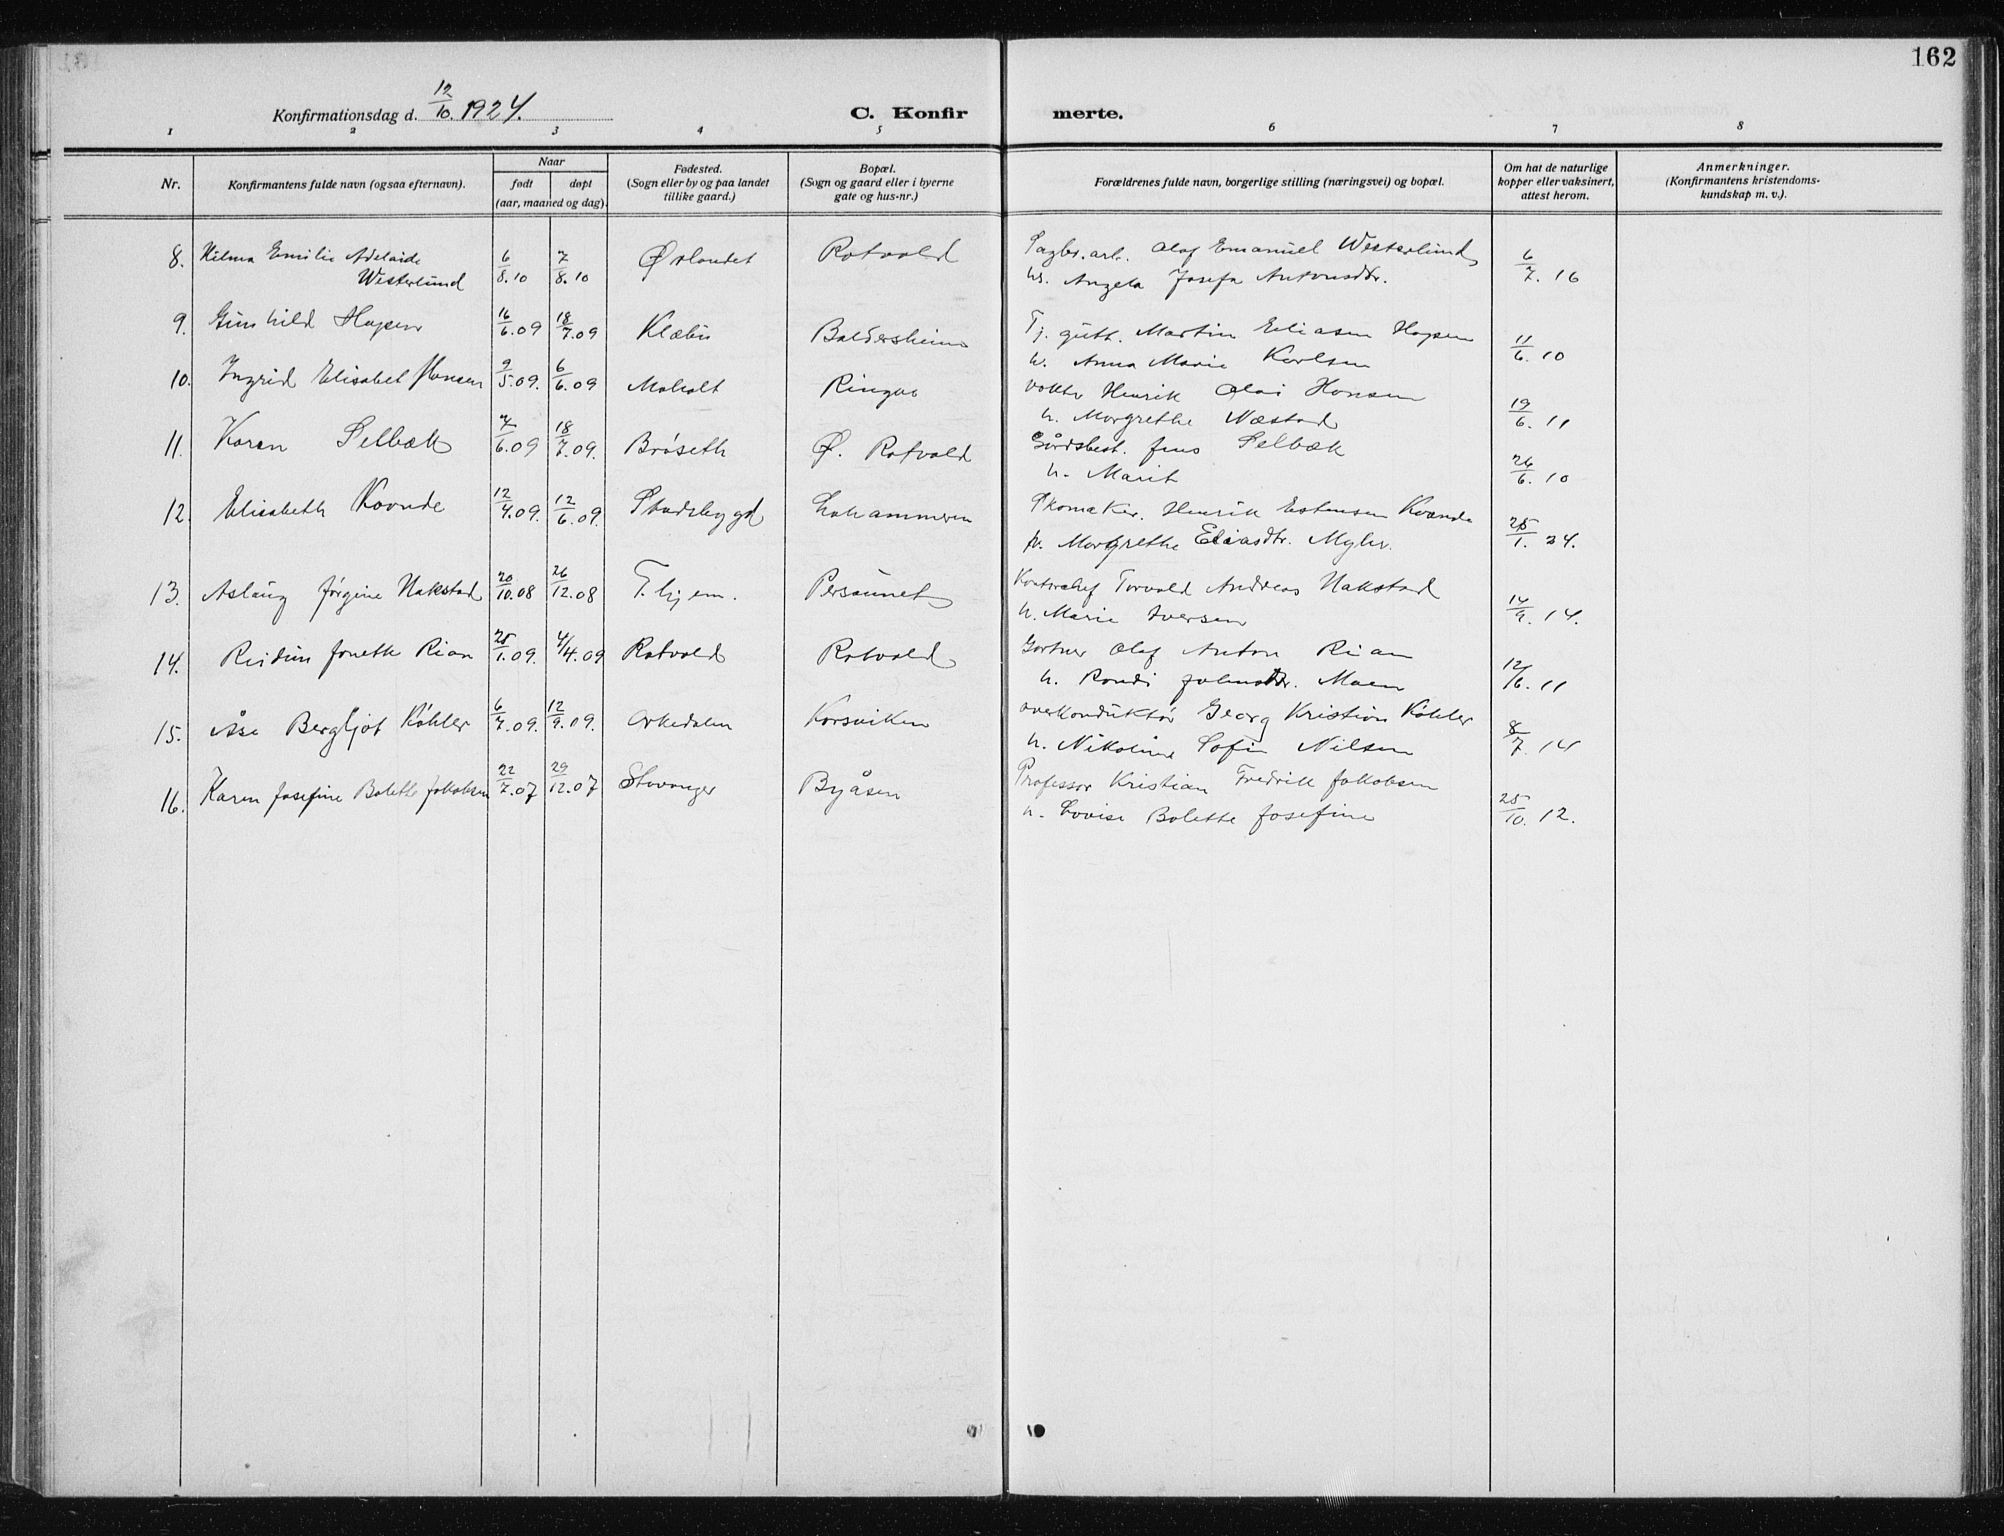 162
Konfirmationsdag d. 12/10. 1924.
C. Konfirmerte.
1 2 3 4 5 6 7 8
Nr.
Konfirmantens fulde navn (ogsaa efternavn).
Naar
født døpt
(aar, maaned og dag).
Fødested.
(Sogn eller by og paa landet
tillike gaard.)
Bopæl.
(Sogn og gaard eller i byerne
gate og hus-nr.)
Forældrenes fulde navn, borgerlige stilling (næringsvei) og bopæl.
Om hat de naturlige
kopper eller vaksinert,
attest herom.
Anmerkninger.
(Konfirmantens kristendoms-
kundskap m. v.).
8. Hilma Emilie Adelaide 6/8.10 7/8.10 Ørlandet Rotvold Sagbr. arb. Olaf Emanuel Westerlund 6/7. 16
Westerlund h. Angela Josefa Antonsdtr.
9. Gunhild Hagen 16/6.09 18/7.09 Klæbu Baldersheim Tj. gutt. Martin Eliasen Hagen 11/6. 10
h. Anna Marie Karlsen
10. Ingrid Elisabet Hansen 9/5.09. 6/6.09 Moholt Ringve Vokter Henrik Olai Hansen 19/6. 11
h. Margrethe Næstad
11. Karen Selbæk 7/6.09 18/7.09. Brøseth Ø. Rotvold Gårdsbest. Jens Selbæk 26/6. 10
h. Marit
12. Elisabeth Kvande 12/4.09. 12/6.09. Stadsbygd Ladehammeren Skomaker. Henrik Estensen Kvande 25/1. 24.
h. Margrethe Eliasdtr. Myhr.
13. Aslaug Jørgine Nakstad 20/10.08 26/12.08 T.hjem. Persaunet Kontorchef Torvald Andreas Nakstad 14/9. 14.
h. Marie Iversen
14. Reidun Jonette Rian 25/1.09. 4/4.09 Rotvold Rotvold Gartner Olaf Anton Rian 12/6. 11
h. Randi Johnsdtr. Moen
15. Åse Bergljot Köhler 6/7.09. 12/9.09. Orkedalen Korsviken Overkonduktør Georg Kristian Köhler 8/7. 14
h. Nikoline Sofie Nilsen
16. Karen Josefine Bolette Jakobsen 22/7.07 29/12.07 Stavanger Byåsen Professor Kristian Fredrik Jakobsen 25/10. 12.
h. Lovise Bolette Josefine